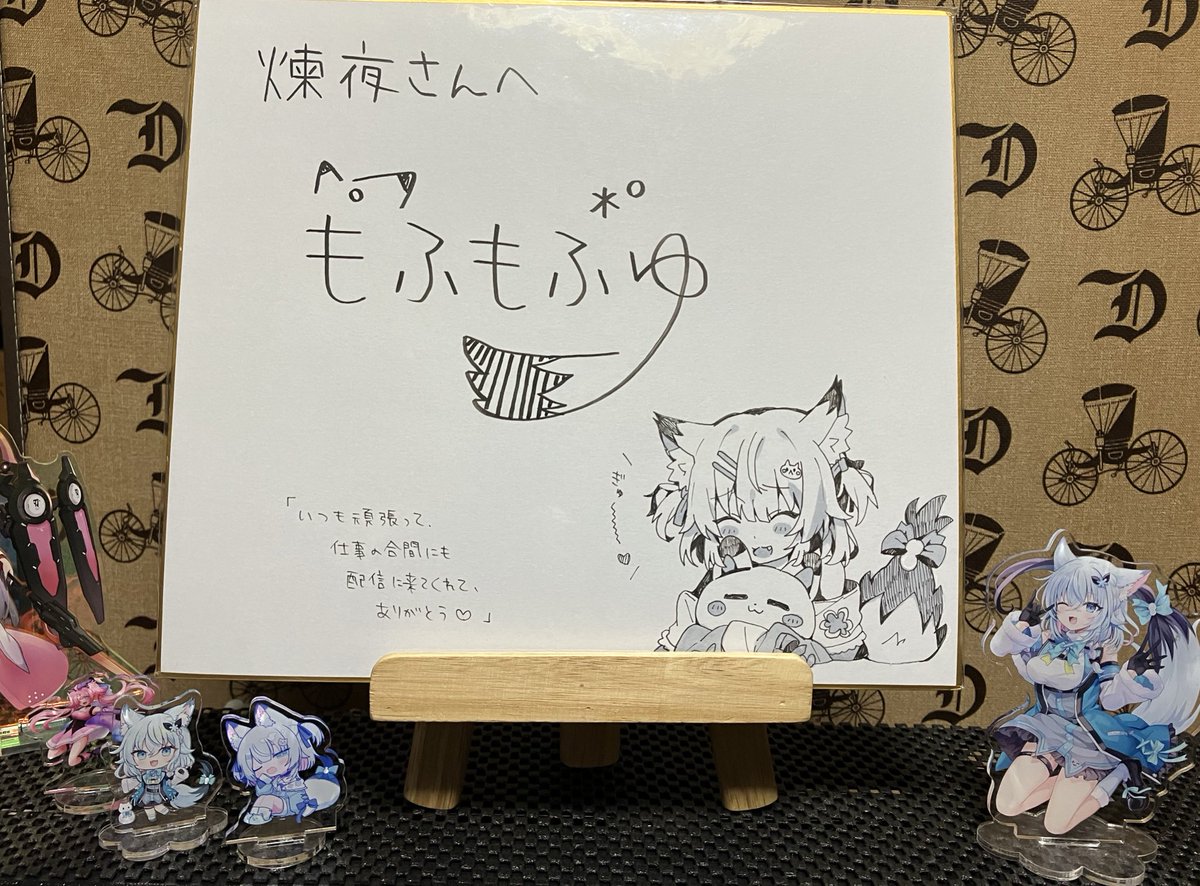 煉夜さんへ
もふもふゆ
ぎゅ
「いつも頑張って、
仕事の合間にも
配信に来てくれて、
ありがとう♡」
D
D
D
D
D
D
D
D